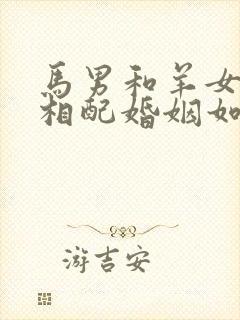 馬男和羊女
相配婚姻如
游吉安